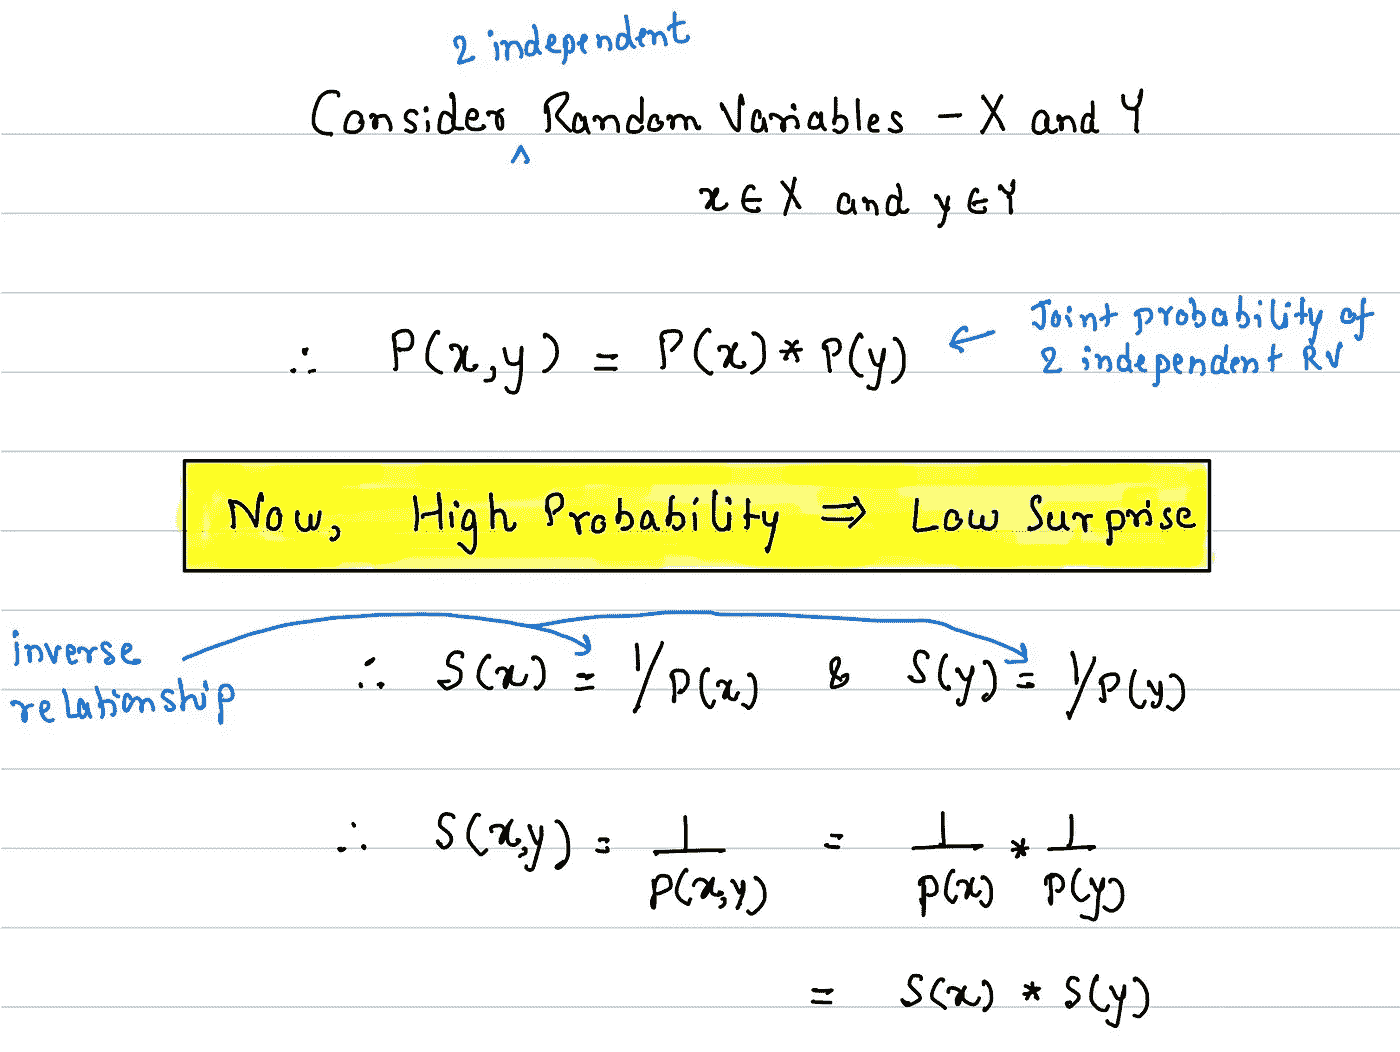 2 independent
Consider ^ Random Variables - X and Y
x ∈ X and y ∈ Y
∴ P(x,y) = P(x) * P(y) ← Joint probability of
2 independent RV
Now, High Probability ⇒ Low Surprise
inverse
relationship
∴ S(x) = 1/P(x) & S(y) = 1/P(y)
∴ S(x,y) = 1/P(x,y) = 1/P(x) * 1/P(y)
= S(x) * S(y)